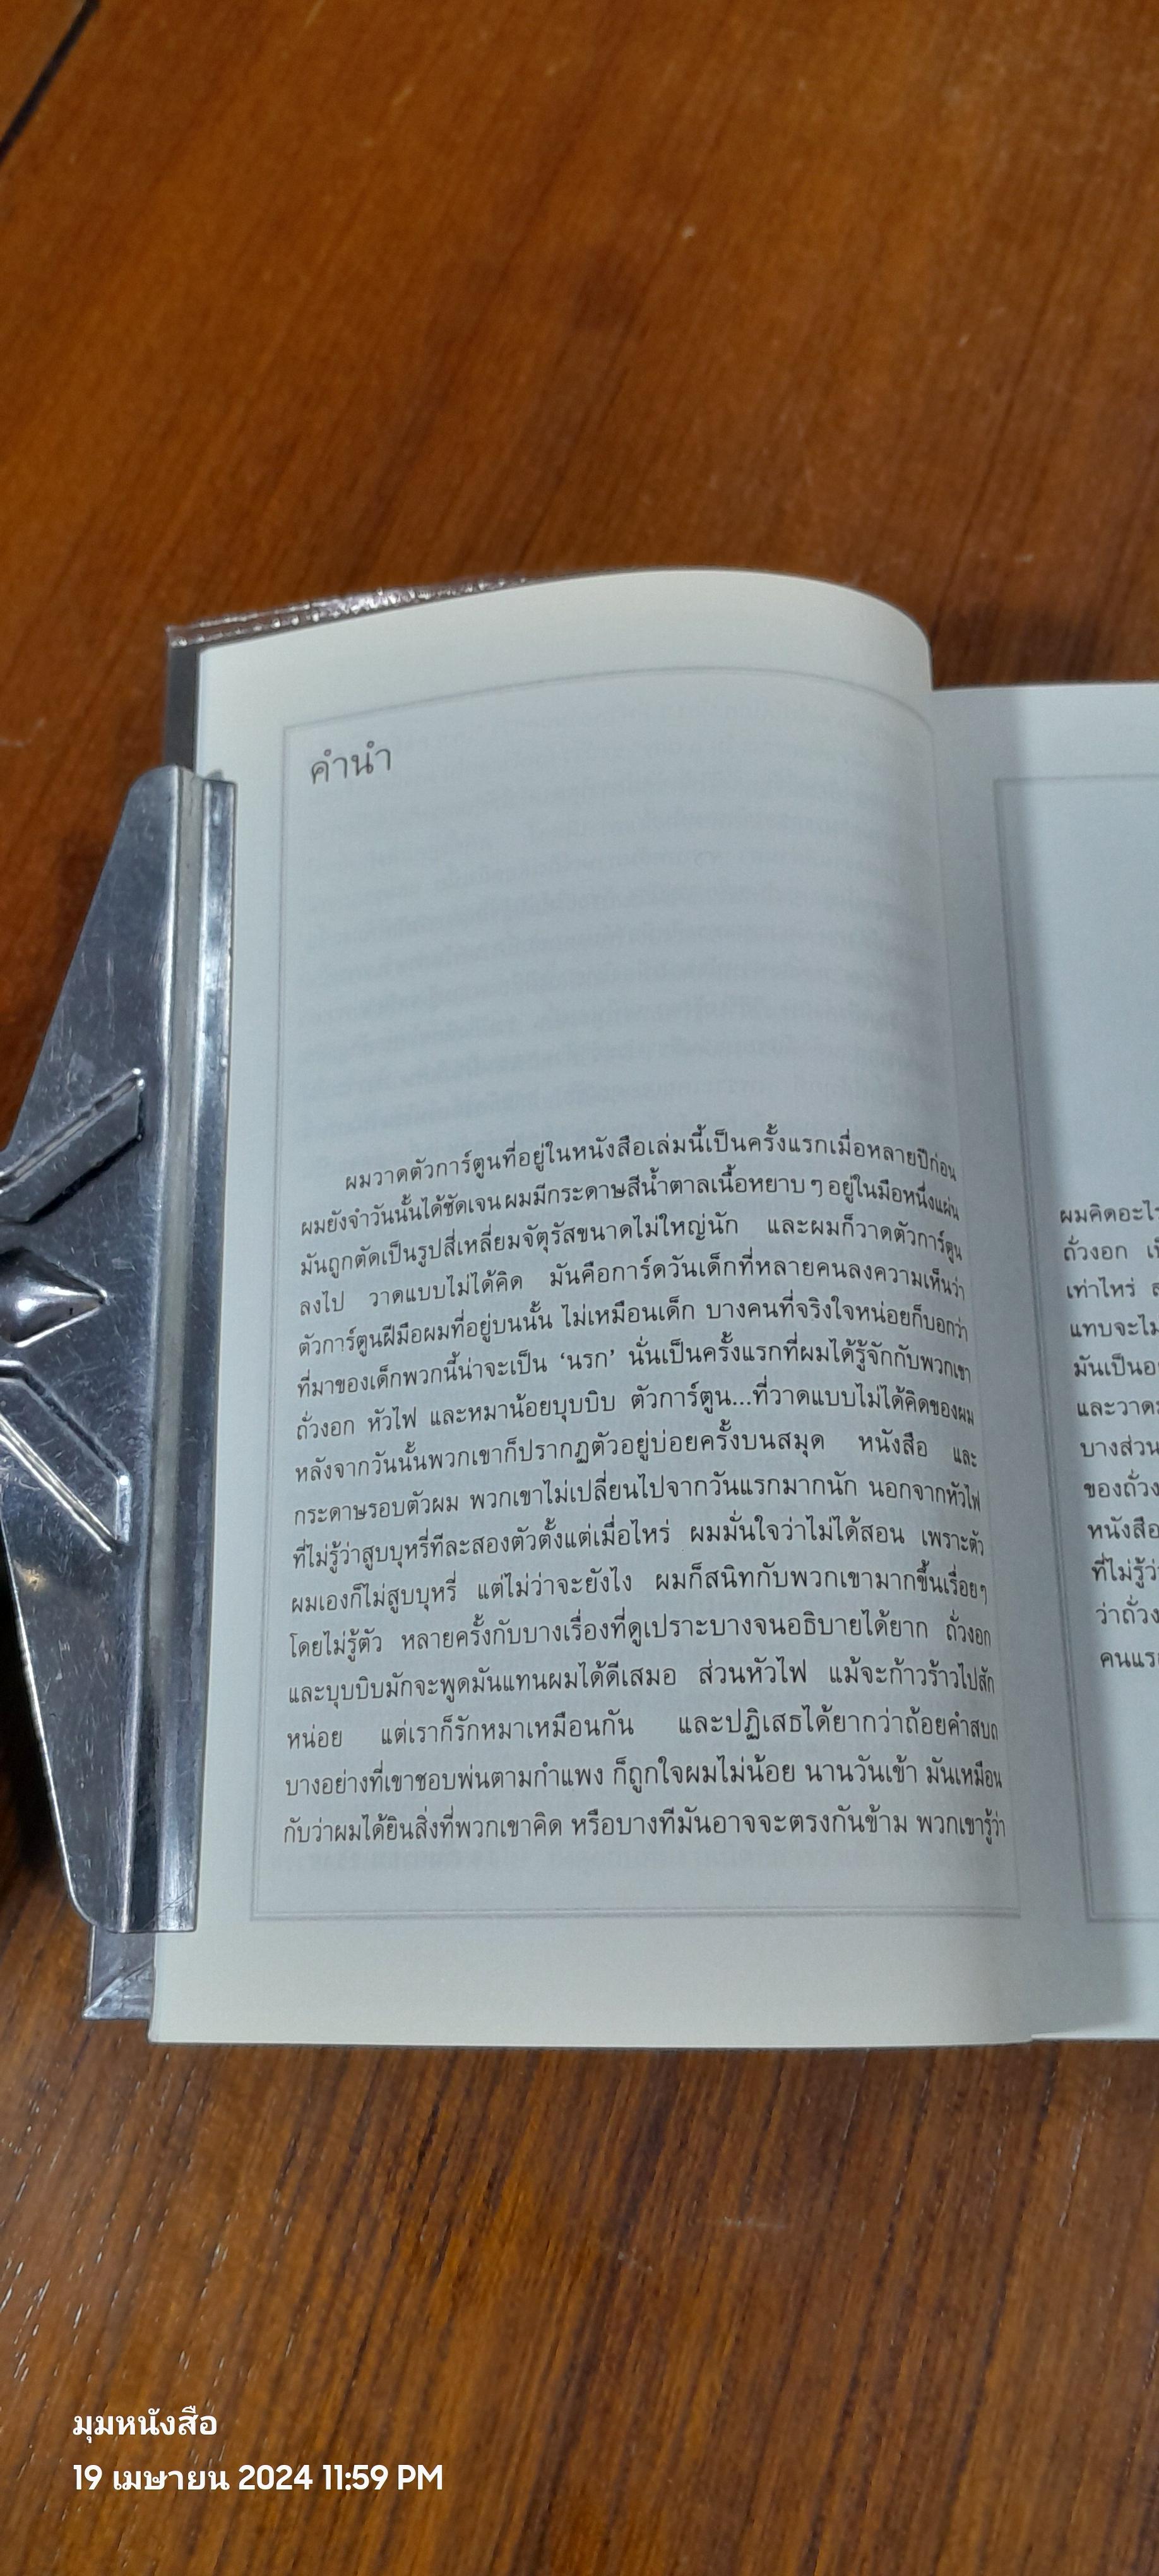 คำนำ
ผมวาดตัวการ์ตูนที่อยู่ในหนังสือเล่มนี้เป็นครั้งแรกเมื่อหลายปีก่อน
ผมยังจำวันนั้นได้ชัดเจน ผมมีกระดาษสีน้ำตาลเนื้อหยาบ ๆ อยู่ในมือหนึ่งแผ่น
มันถูกตัดเป็นรูปสี่เหลี่ยมจัตุรัสขนาดไม่ใหญ่นัก และผมก็วาดตัวการ์ตูน
ลงไป วาดแบบไม่ได้คิด มันคือการ์ดวันเด็กที่หลายคนลงความเห็นว่า
ตัวการ์ตูนฝีมือผมที่อยู่บนนั้น ไม่เหมือนเด็ก บางคนที่จริงใจหน่อยก็บอกว่า
ที่มาของเด็กพวกนี้น่าจะเป็น ‘นรก’ นั่นเป็นครั้งแรกที่ผมได้รู้จักกับพวกเขา
ถั่วงอก หัวไฟ และหมาน้อยบุบบิบ ตัวการ์ตูน...ที่วาดแบบไม่ได้คิดของผม
หลังจากวันนั้นพวกเขาก็ปรากฏตัวอยู่บ่อยครั้งบนสมุด หนังสือ และ
กระดาษรอบตัวผม พวกเขาไม่เปลี่ยนไปจากวันแรกมากนัก นอกจากหัวไฟ
ที่ไม่รู้ว่าสูบบุหรี่ทีละสองตัวตั้งแต่เมื่อไหร่ ผมมั่นใจว่าไม่ได้สอน เพราะตัว
ผมเองก็ไม่สูบบุหรี่ แต่ไม่ว่าจะยังไง ผมก็สนิทกับพวกเขามากขึ้นเรื่อยๆ
โดยไม่รู้ตัว หลายครั้งกับบางเรื่องที่ดูเปราะบางจนอธิบายได้ยาก ถั่วงอก
และบุบบิบมักจะพูดมันแทนผมได้ดีเสมอ ส่วนหัวไฟ แม้จะก้าวร้าวไปสัก
หน่อย แต่เราก็รักหมาเหมือนกัน และปฏิเสธได้ยากว่าถ้อยคำสบถ
บางอย่างที่เขาชอบพ่นตามกำแพง ก็ถูกใจผมไม่น้อย นานวันเข้า มันเหมือน
กับว่าผมได้ยินสิ่งที่พวกเขาคิด หรือบางทีมันอาจจะตรงกันข้าม พวกเขารู้ว่า
ผมคิดอะไร
ถั่วงอก
เท่าไหร่
แทบจะไม่
มันเป็น
และวาด
บางส่วน
ของถั่วง
หนังสือ
ที่ไม่รู้ว่
ว่าถั่วง
คนแร
มุมหนังสือ
19 เมษายน 2024 11:59 PM